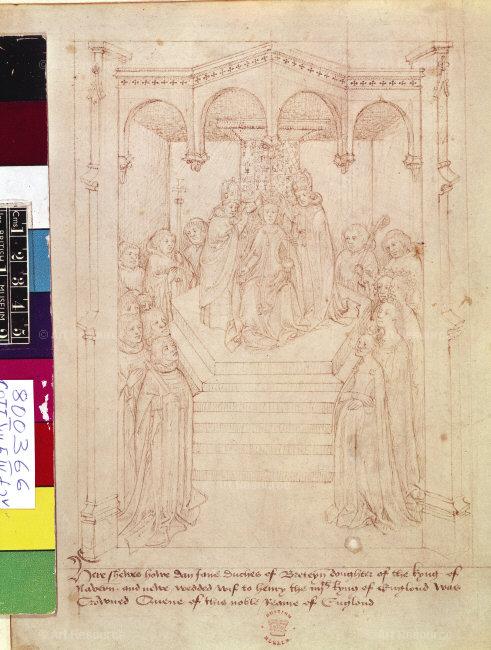 Cms
1 2 3 4 5
BRITISH
MUSEUM
800366
Here shewes howe dam Jane duches of Breteyn doughter of the kyng of
Navern and newe wedded wif to henry the iiijth kyng of Englond was
Crowned Quene of this noble Reame of Englond
BRITISH
MUSEUM
© Art Resource